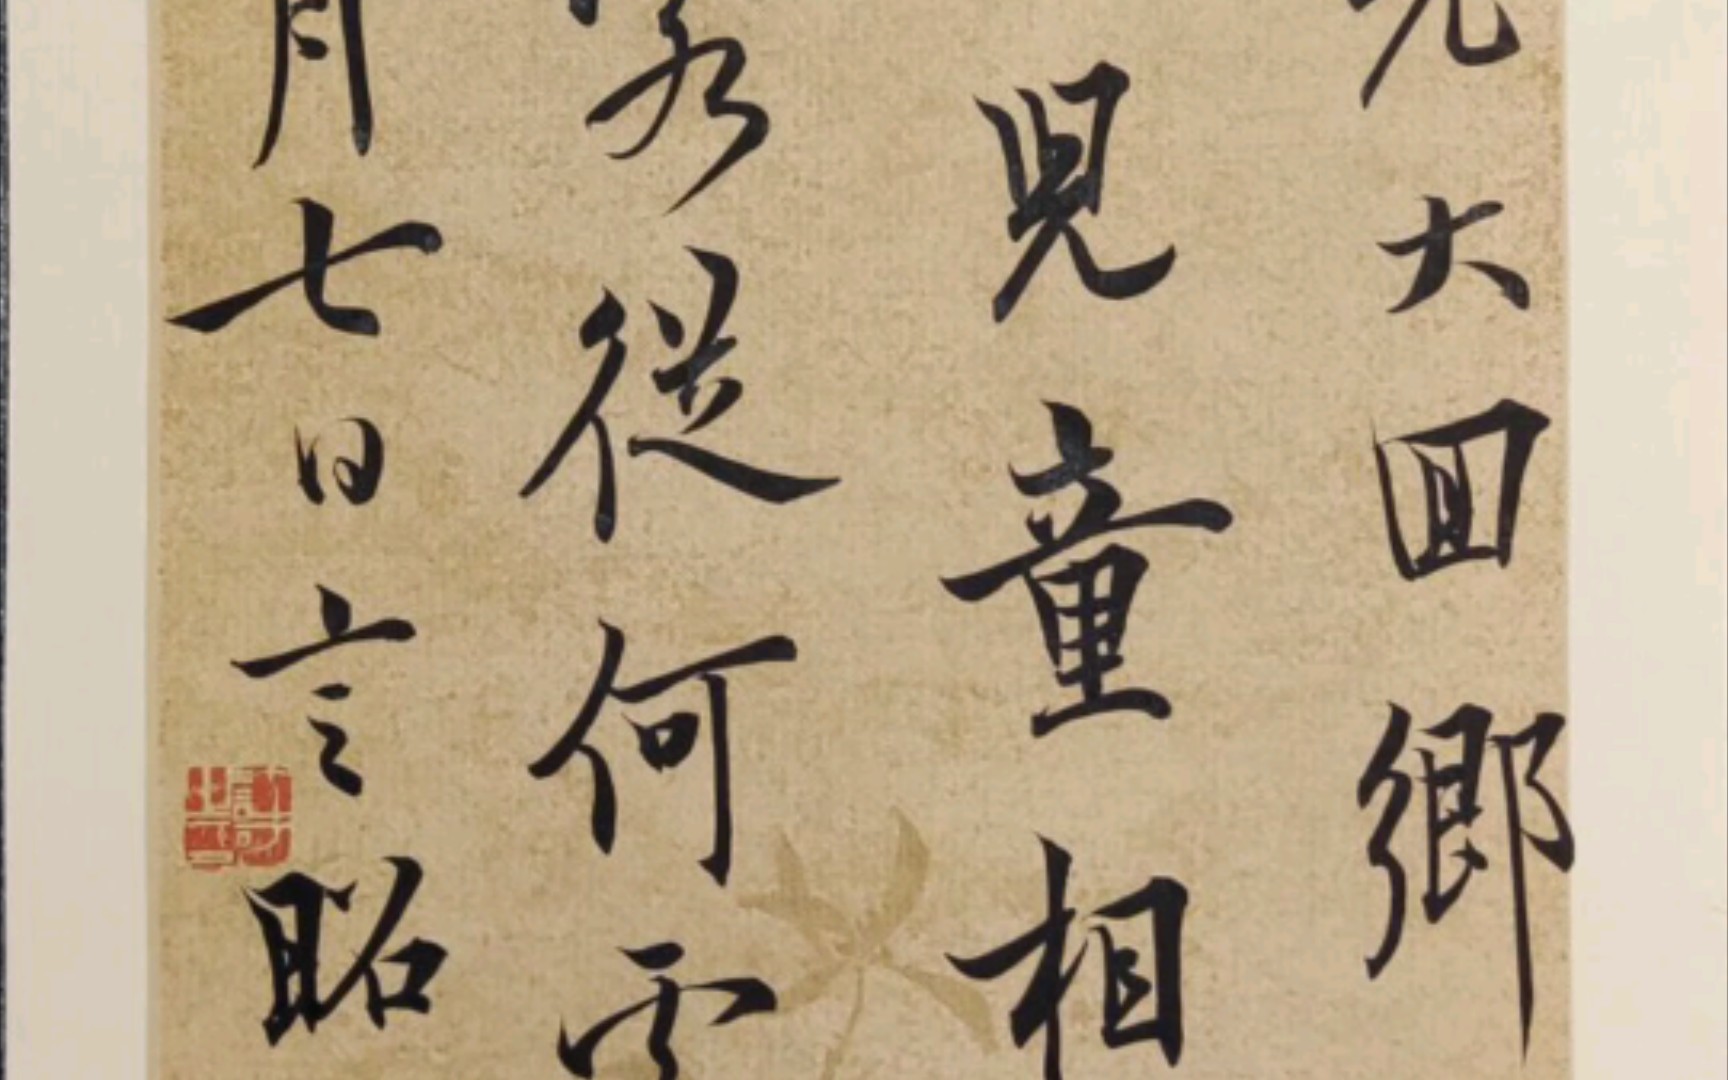 大回鄉
兒童相
客從何
月七日言昭